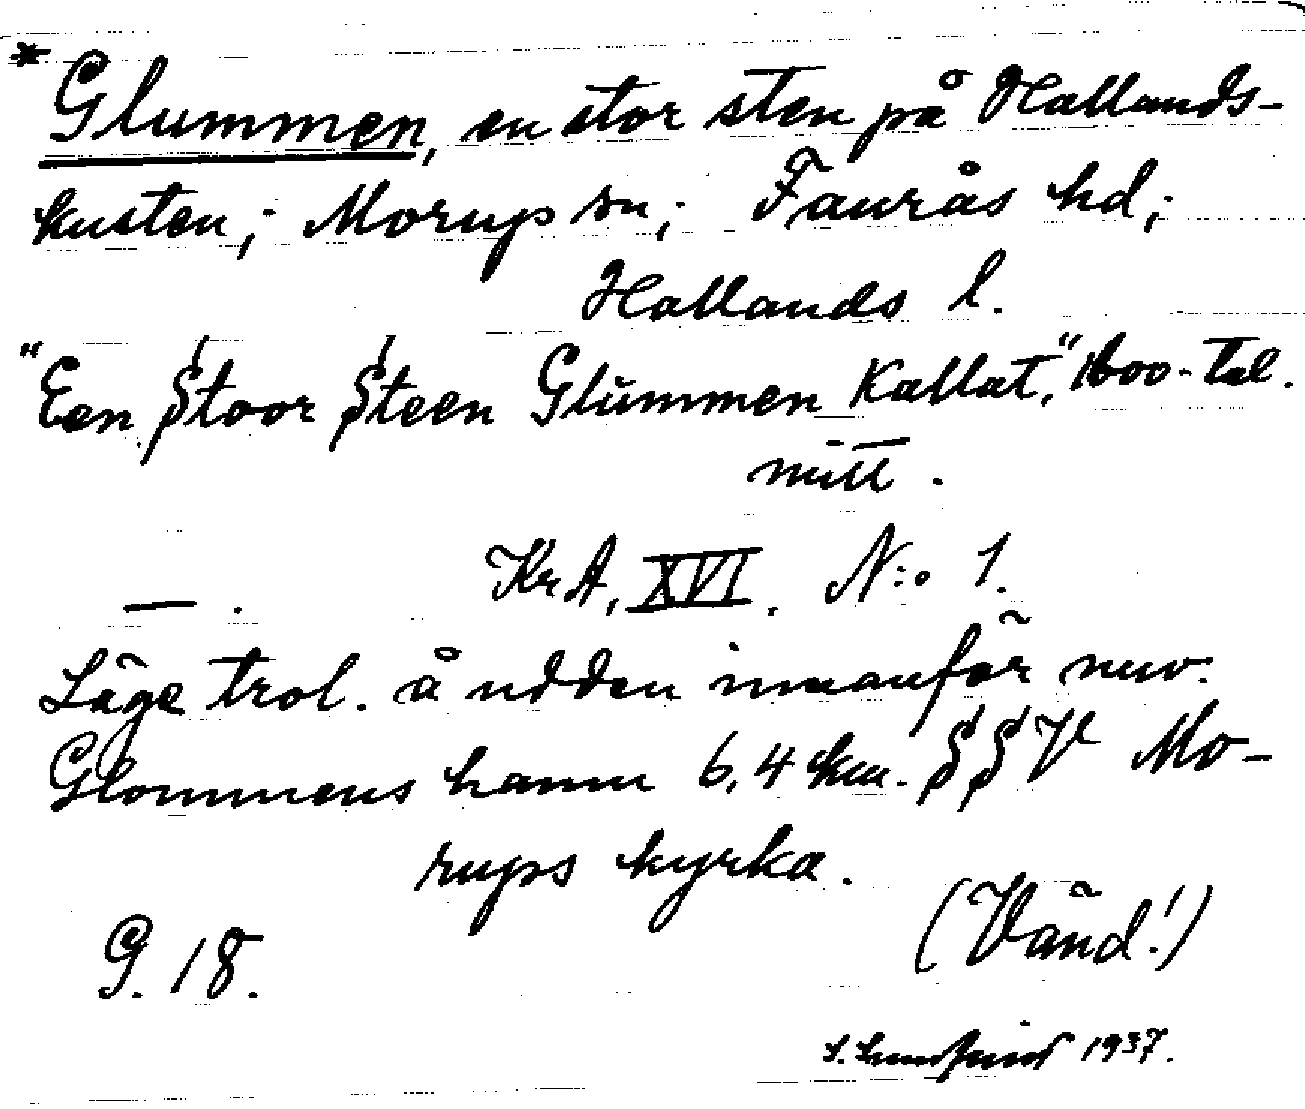 * Glummen, en stor sten på Hallands-
kusten; Morup sn; Faurås hd;
Hallands l.
"Een Stoor Steen Glŭmmen Kallat," 1600-tal.
mitt.
— . Kr A, XVI. N:o 1.
Läge trol. å udden innanför nuv.
Glommens hamn 6,4 km. SSV Mo-
rups kyrka.
(Vänd!)
G. 18.
1937.